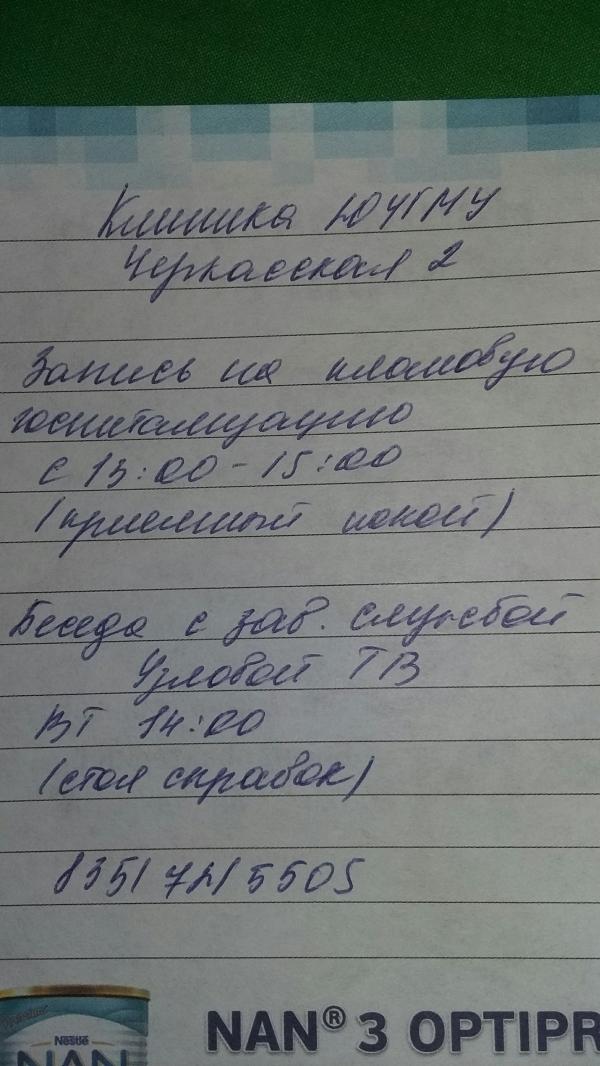 Клиника ЮУГМУ
Черкасская 2
Запись на плановую
госпитализацию
с 13:00 - 15:00
(приемный покой)
Беседа с зав. службой
Узловой ТВ
ВТ 14:00
(стол справок)
8351 7215505
Nestlé
NAN
NAN® 3 OPTIPR